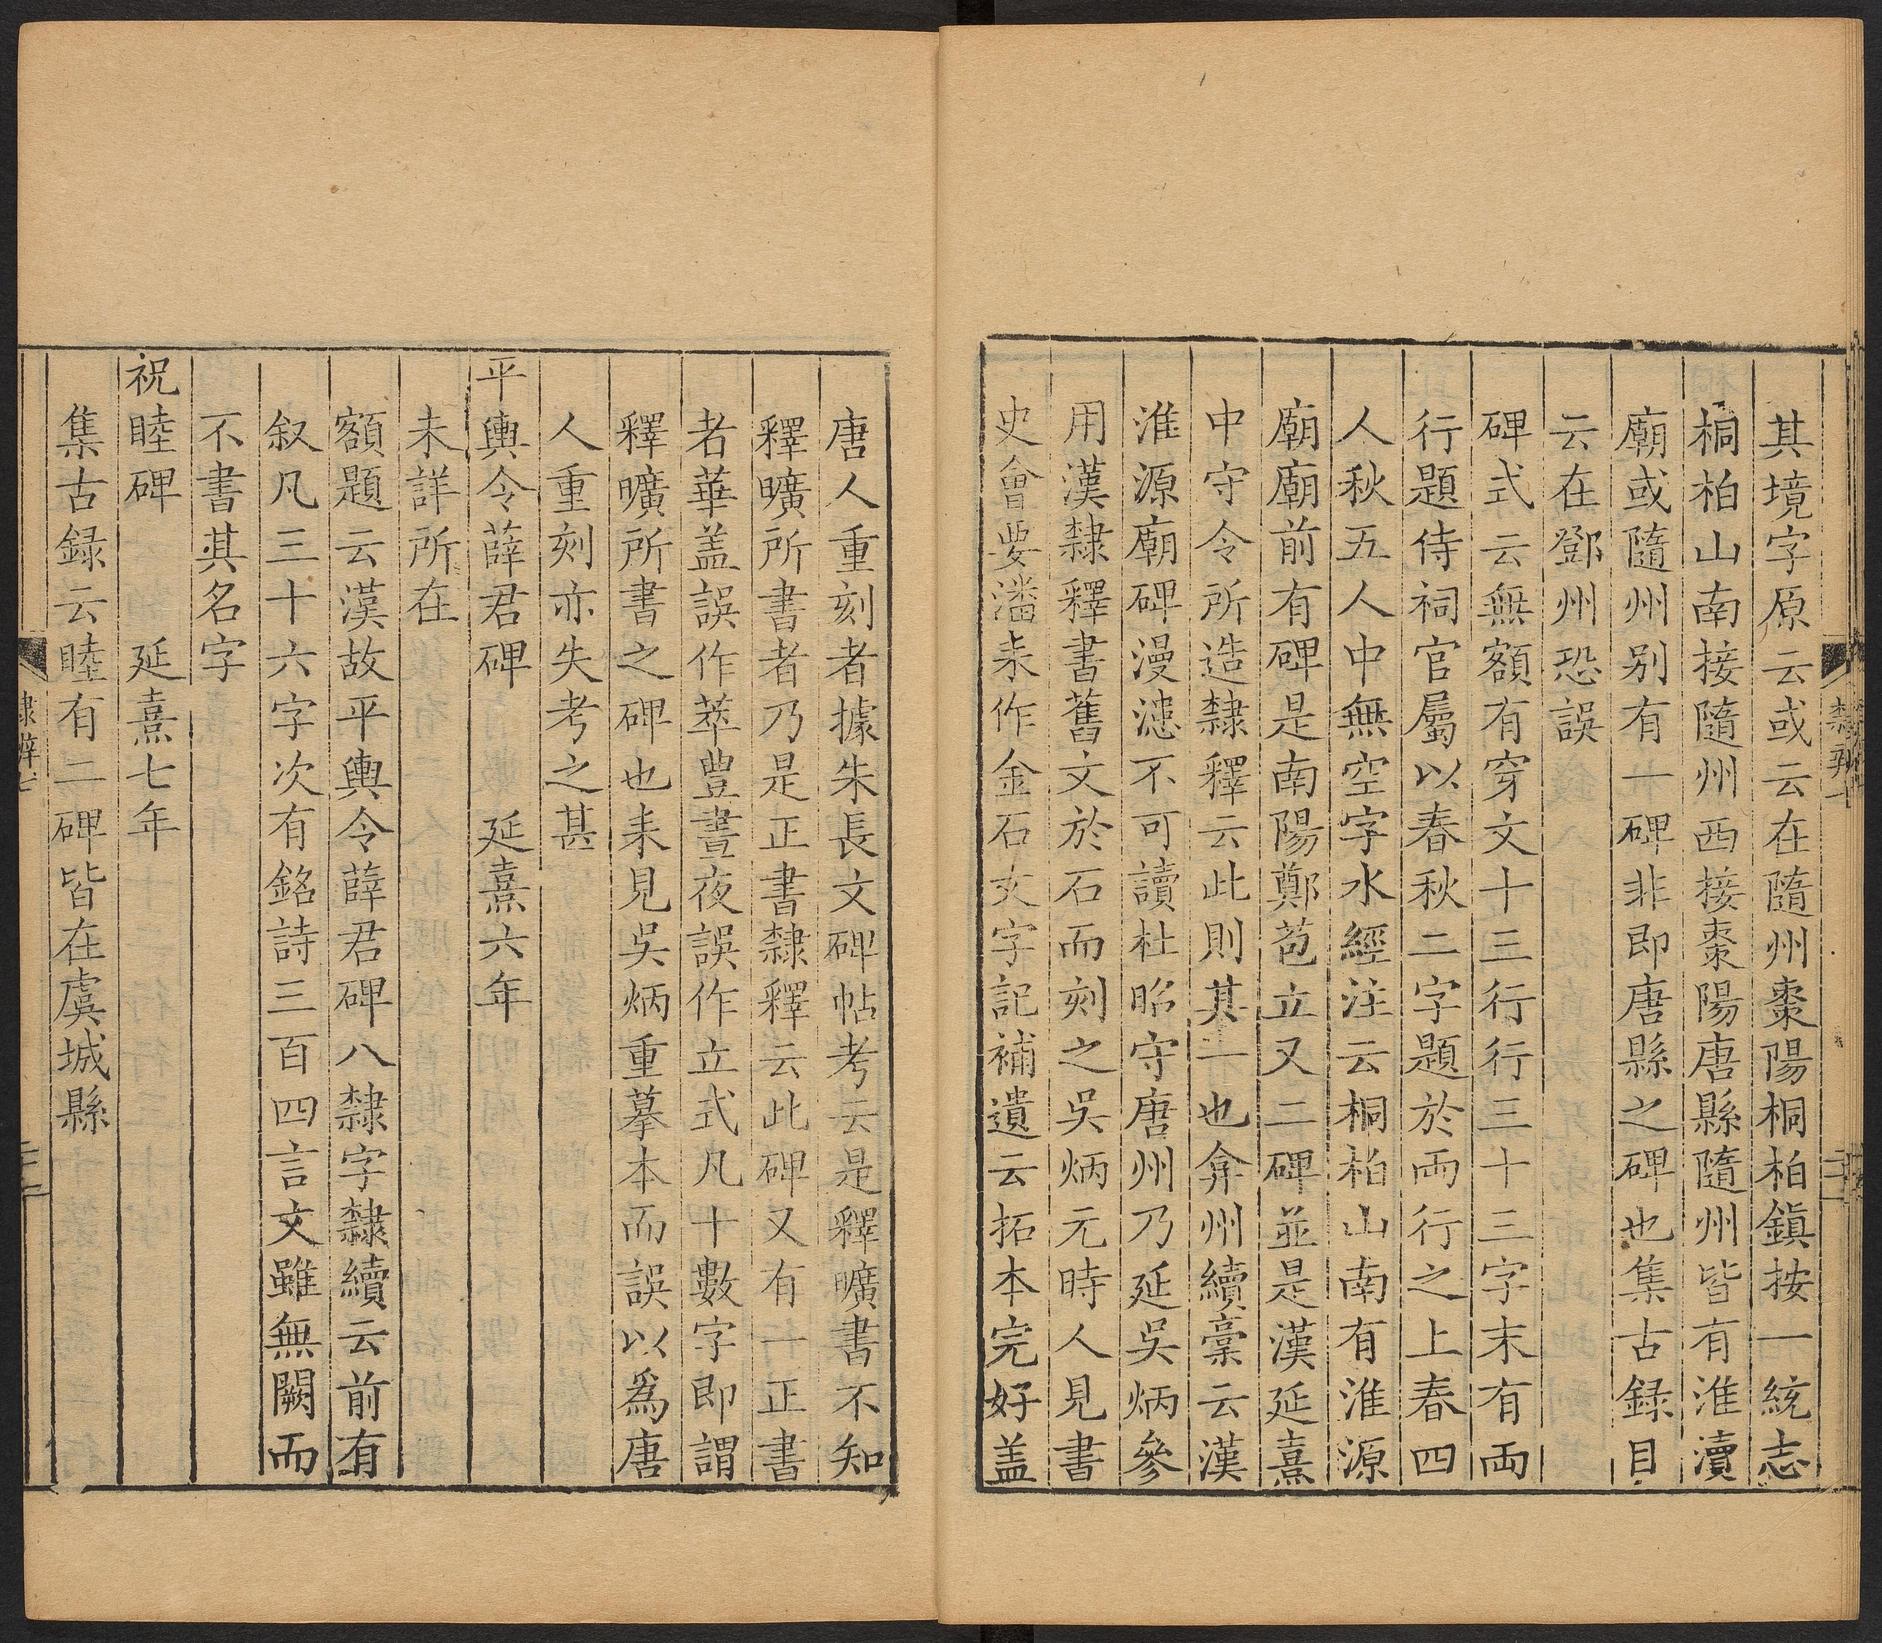 其境字原云或云在隨州棗陽桐柏鎮按一統志
桐柏山南接隨州西接棗陽唐縣隨州皆有淮瀆
廟或隨州别有一碑非即唐縣之碑也集古録目
云在鄧州恐誤
碑式云無額有穿文十三行行三十三字末有兩
行題侍祠官屬以春秋二字題於兩行之上春四
人秋五人中無空字水經注云桐柏山南有淮源
廟廟前有碑是南陽鄭苞立又二碑並是漢延熹
中守令所造隸釋云此則其一也弇州續稾云漢
淮源廟碑漫漶不可讀杜昭守唐州乃延吳炳參
用漢隸釋書舊文於石而刻之吳炳元時人見書
史會要潘耒作金石文字記補遺云拓本完好盖
唐人重刻者據朱長文碑帖考云是釋曠書不知
釋曠所書者乃是正書隸釋云此碑又有一正書
者華盖誤作萃豊晝夜誤作立式凡十數字即謂
釋曠所書之碑也耒見吳炳重摹本而誤以爲唐
人重刻亦失考之甚
平輿令薛君碑 延熹六年
未詳所在
額題云漢故平輿令薛君碑八隸字隸續云前有
叙凡三十六字次有銘詩三百四言文雖無闕而
不書其名字
祝睦碑 延熹七年
集古録云睦有二碑皆在虞城縣